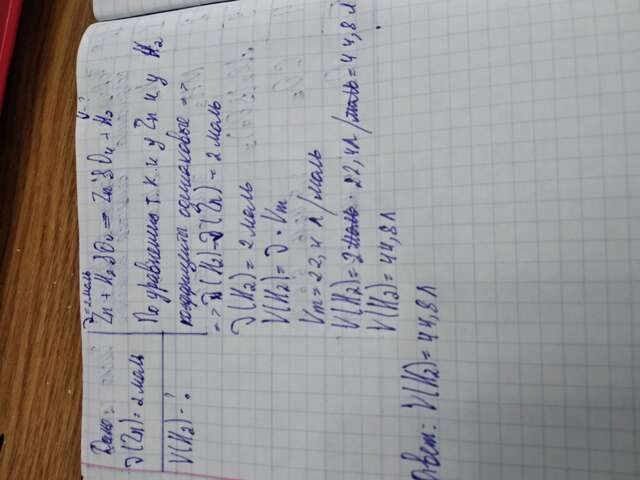 Дано:
ν(Zn) = 2 моль
V(H₂) - ?
ν=2моль V-?
Zn + H₂SO₄ = ZnSO₄ + H₂
По уравнению т.к. и у Zn и у H₂
коэффициенты одинаковые =>
=> ν(H₂) = ν(Zn) = 2 моль
ν(H₂) = 2 моль
V(H₂) = ν · Vm
Vm = 22,4 л/моль
V(H₂) = 2 моль · 22,4 л/моль = 44,8 л
V(H₂) = 44,8 л
Ответ: V(H₂) = 44,8 л